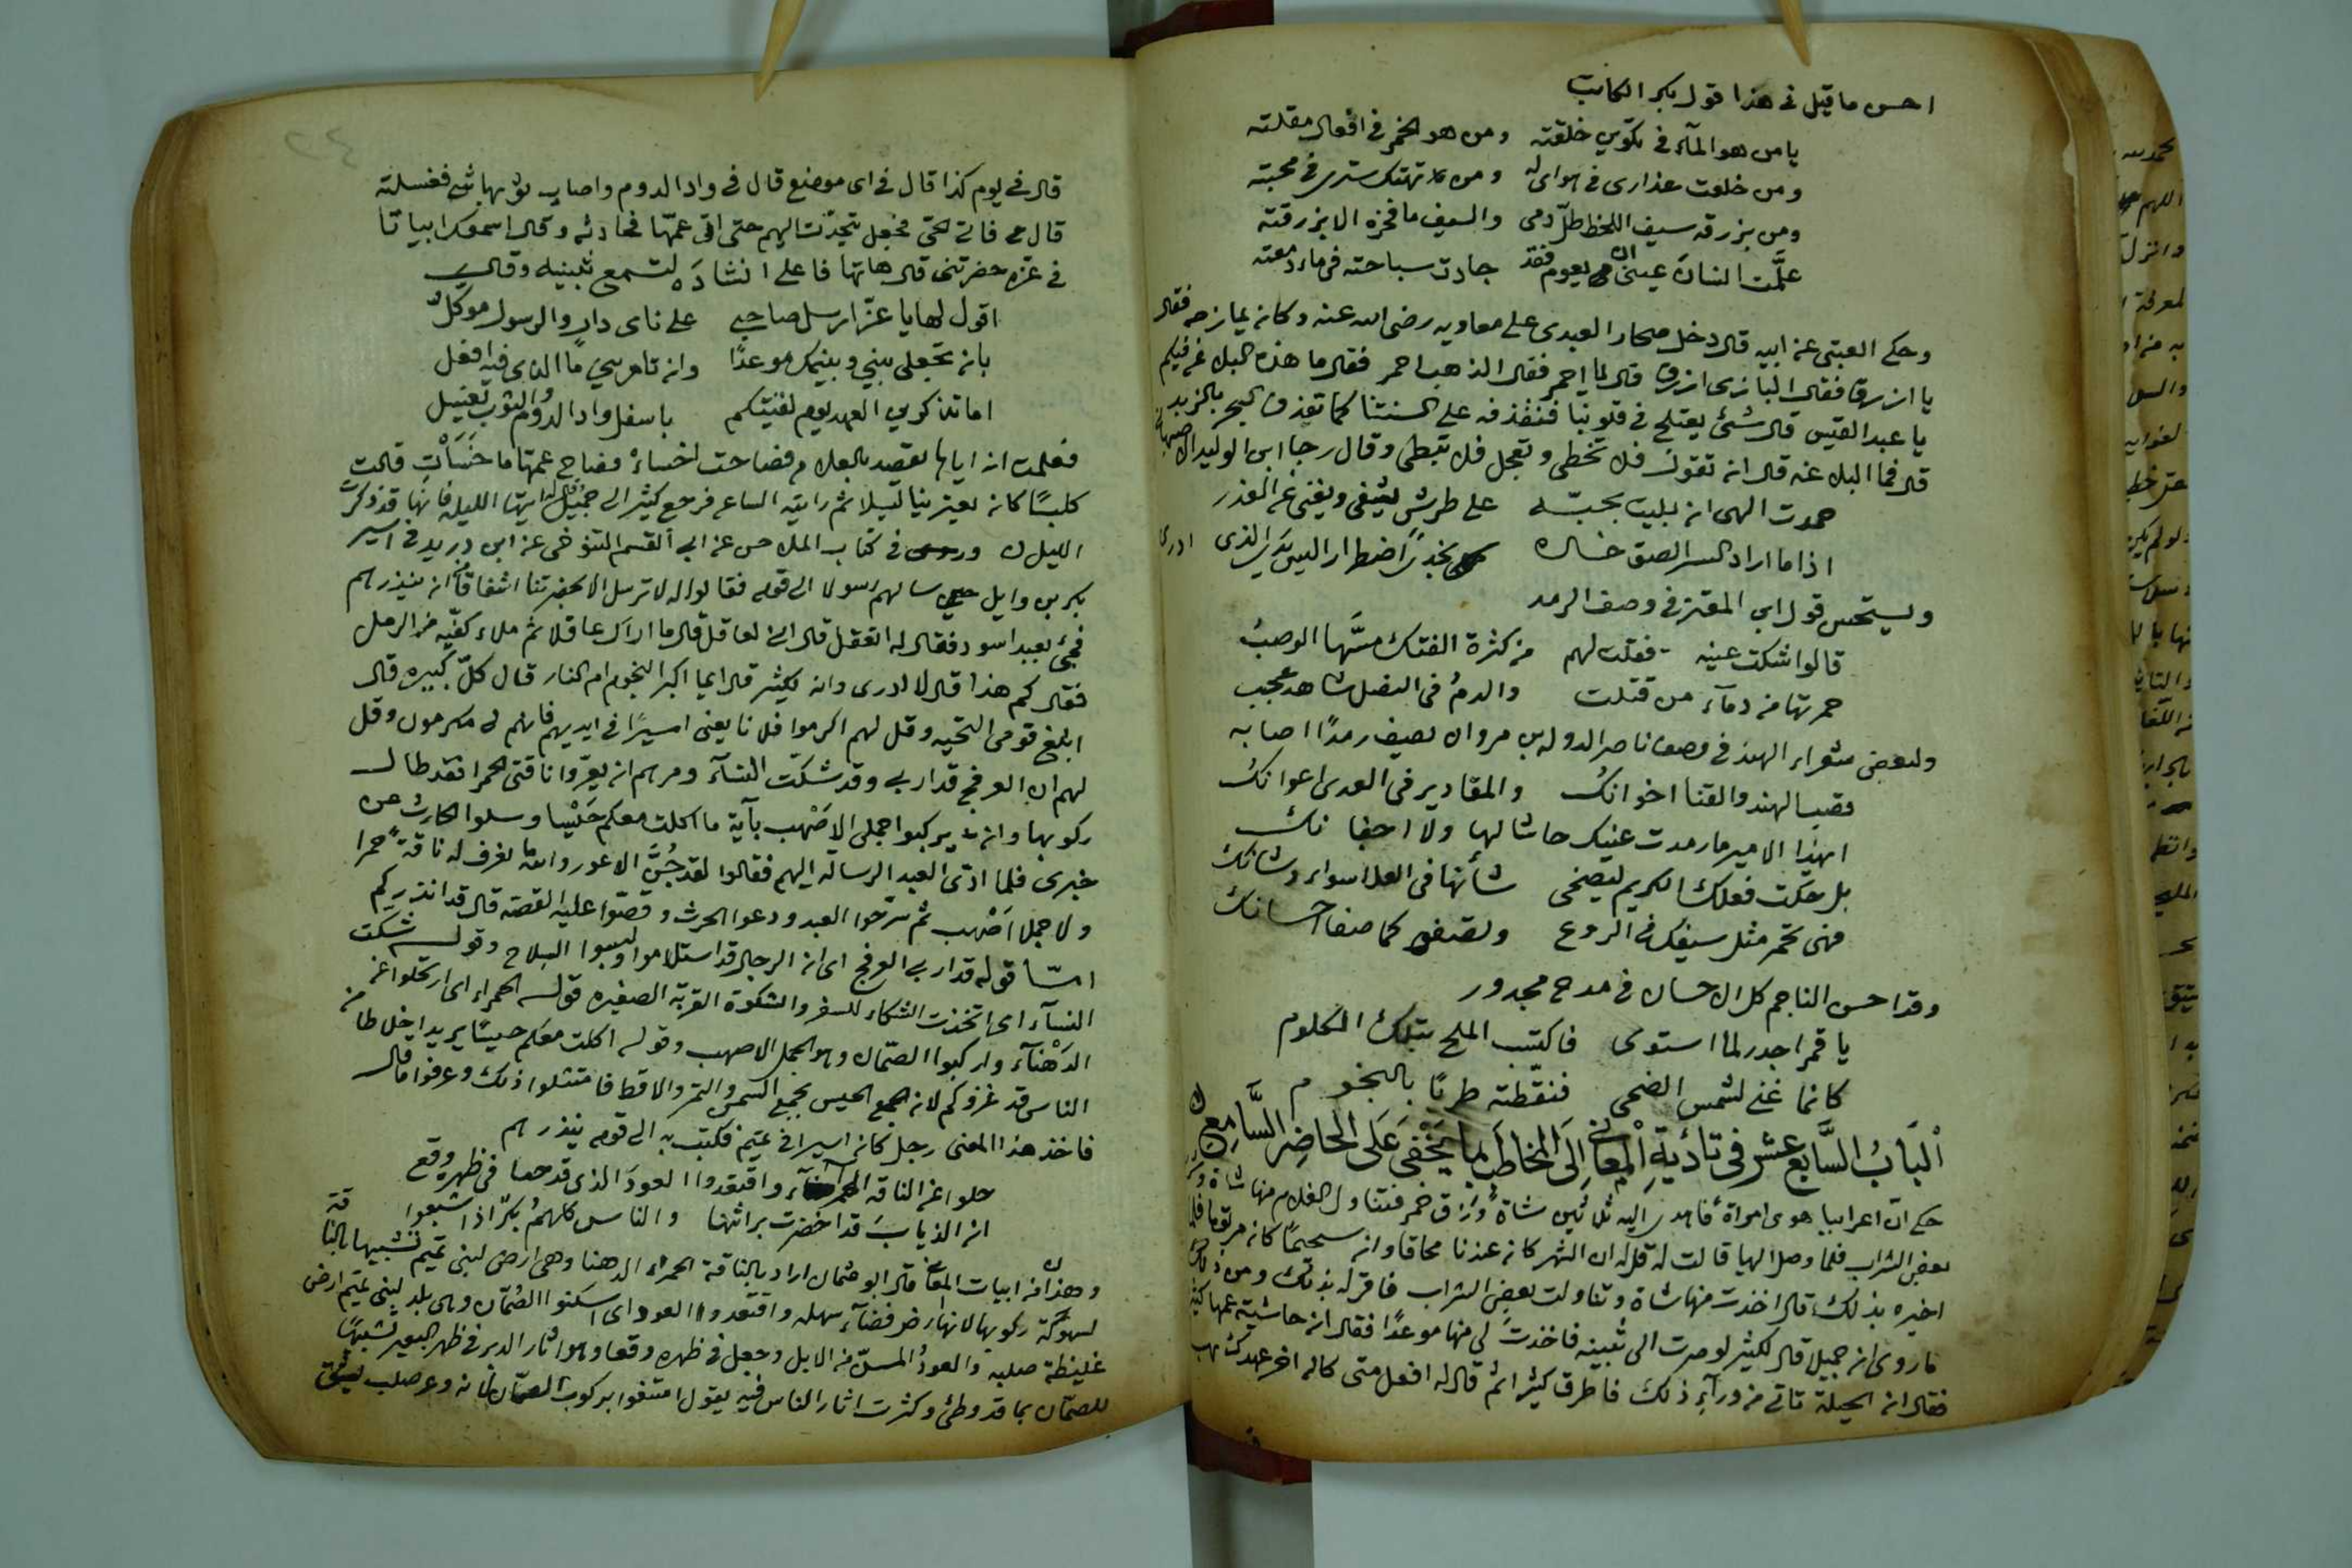 احسن ما قيل في هذا قول بكر الكاتب
يا من هو المآء في تكوين خلقته ومن هو الخمر في افعال مقلته
ومن خلعت عذارى في هواى له ومن تهتك سترى في محبته
ومن بزرقة سيف اللحظ طلّ دمى والسيف ما فخره الا بزرقته
علّمت انسان عينى ان يعوم فقد جادت سباحته في ماء دمعته
وحكى العتبى عن ابيه قال دخل صحار العبدى على معاويه رضى الله عنه وكان يمازحه فقال
يا ازرق فقال البازى ازرق قال يا احمر فقال الذهب احمر فقال ما هذه البلاغه فيكم
يا عبد القيس قال شئ يعتلج في قلوبنا فنقذفه على السنتنا كما تقذف البحر بالزبد
قال فما البلاغه قال ان تقول فلا تخطى وتعجل فلا تبطى وقال رجا ابن الوليد الاصبهانى
حمدت الهى اذ بليت بحبّه على طرش يشفى ويغنى عن العذر
اذا ما اراد السر الصق خده بخدى اضطرارا ليس يدرى الذى ادرى
ويستحسن قول ابن المعتز في وصف الرمد
قالوا اشتكت عينه فقلت لهم من كثرة الفتك مسّها الوصب
حمرتها من دمآء من قتلت والدم في النصل شاهد عجب
ولبعض شعراء الهند في وصف ناصر الدوله بن مروان يصف رمدًا اصابه
قضب الهند والقنا اخوانك والمقادير في العدى اعوانك
ايهذا الامير ما رمدت عينك حاشا لها ولا اجفانك
بل حكت فعلك الكريم ليضحى شأنها في العلا سواء وشانك
فهى تحمر مثل سيفك في الروع وتصفو كما صفا احسانك
وقد احسن الناجم كل الاحسان في مدح مجدور
يا قمرا جدر لما استوى فاكتسب الملح بتلك الكلوم
كانما غنى لشمس الضحى فنقّطته طربًا بالنجوم
اَلْبَابُ السَّابع عشر في تَادُيةِ الْمَعانى اِلَى المخاطَب بما يَخْفى عَلَى الحَاضِر السَّامِع
حكى ان اعرابيا هوى امراة فاهدى اليه ثلاثين شاة وزق خمر فتناول الغلام منها شاة وشرب
بعض الشراب فلما وصل اليها قالت له قل له ان الشهر كان عندنا محاقا وان سحيمًا كان مرثوما فلما
اخبره بذلك قال اخذت منها شاة وتناولت بعض الشراب فاقر له بذلك ومن ذلك
ما روى ان جميل قال لكثير لو صرت الى بثينه فاخذت لى منها موعدًا فقال ان حاشية عمها كثير
فقال ان الحيلة تاتى من ورآء ذلك فاطرق كثير ثم قال له افعل متى كان اخر عهدك بهم
قال في يوم كذا قال في اى موضع قال في واد الدوم واصاب ثوبها شئ فغسلته
قال فاتى الحى فجعل يتحدث اليهم حتى اتى عمّها فحادثه وقال اسمعك ابياتا
في عزه حضرتنى قال هاتها فاعلى انشاده لتسمع بثينه وقال
اقول لها يا عزّ ارسل صاحبى على ناى دار والرسول موكل
بان تجعلى بينى وبينك موعدًا وان تامرينى ما الذى فيه افعل
اما تذكرين العهد يوم لقيتكم باسفل واد الدوم والثوب يغسل
فعلمت انه اياها يقصد بالعلامه فصاحت اخساء فصاح عمها ما خَسَأتِ قالت
كلبًا كان يعترينا ليلا ثم رايته الساعه فرجع كثير الى جميل فقال له ايتها الليله فانها قد ذكرت
الليل وروى في كتاب الملاحن عن ابى القسم التنوخى عن ابن دريد في اسير
بكر بن وايل سالهم رسولا الى قومه فقالوا له لا ترسل الا بحضرتنا اشفاقا ان ينذرهم
فجئ بعبد اسود فقال له اتعقل قال انى لعاقل قال ما اراك عاقلا ثم ملاء كفّيه من الرمل
فقال كم هذا قال لا ادرى وانه لكثير قال ايما اكبر النجوم ام النار قال كلّ كبيره قال
ابلغ قومى التحيه وقل لهم اكرموا فلانا يعنى اسيرًا في ايديهم فانهم لى مكرمون وقل
لهم ان العرفج قد ادبى وقد شكت النسآء ومرهم ان يعروا ناقتى الحمرا فقد طال
ركوبها وان يركبوا جملى الاصْهب بآية ما اكلت معكم حَيْسا وسلوا الحارث عن
خبرى فلما ادّى العبد الرسالة اليهم فقالوا لقد جُنَّ الاعور والله ما نعرف له ناقةً حمرا
ولا جملا اصْهب ثم سرّحوا العبد ودعوا الحرث وقصّوا عليه القصّه قال قد انذركم
امّا قوله قد ادبى العرفج اى ان الرجال قد استلاموا ولبسوا السلاح وقوله شكت
النسآء اى اتخذت الشكاء للسفر والشكوة القربة الصغيره قوله الحمراء اى ارتحلوا عن
الدَهْنآء واركبوا الصمّان وهو الجمل الاصهب وقوله اكلت معكم حيسًا يريد اخلاطا من
الناس قد غزوكم لانه الحيس يجمع السمن والتمر والاقط فامتثلوا ذلك وعرفوا ما قال
فاخذ هذا المعنى رجل كان اسيرا في تميم فكتب به الى قومه ينذرهم
حلوا عن الناقة الحمرآء واقتعدوا العودَ الذى قد حما في ظهره وقع
ان الذيابَ قد اخضرت براثنها والناس كلهمُ بكرٌ اذا شبعوا
وهذا من ابيات المعانى قال ابو عثمان اراد بالناقة الحمراء الدهنا وهى ارض لبنى تميم تشبيها بالناقة
لسهولة ركوبها لانها ارض فضآء سهله واقتعدوا العود اى اسكنوا الصمّان وهى بلد لبنى تميم ارض
غليظة صلبه والعودُ المسنّ من الابل وجعل في ظهره وقعا وهو اثار الدبر في ظهر البعير تشبيهًا
للصمّان بما قد وطئ وكثرت اثار الناس فيه يقول امتنعوا بركوب الصمّان لانه وعر صلب